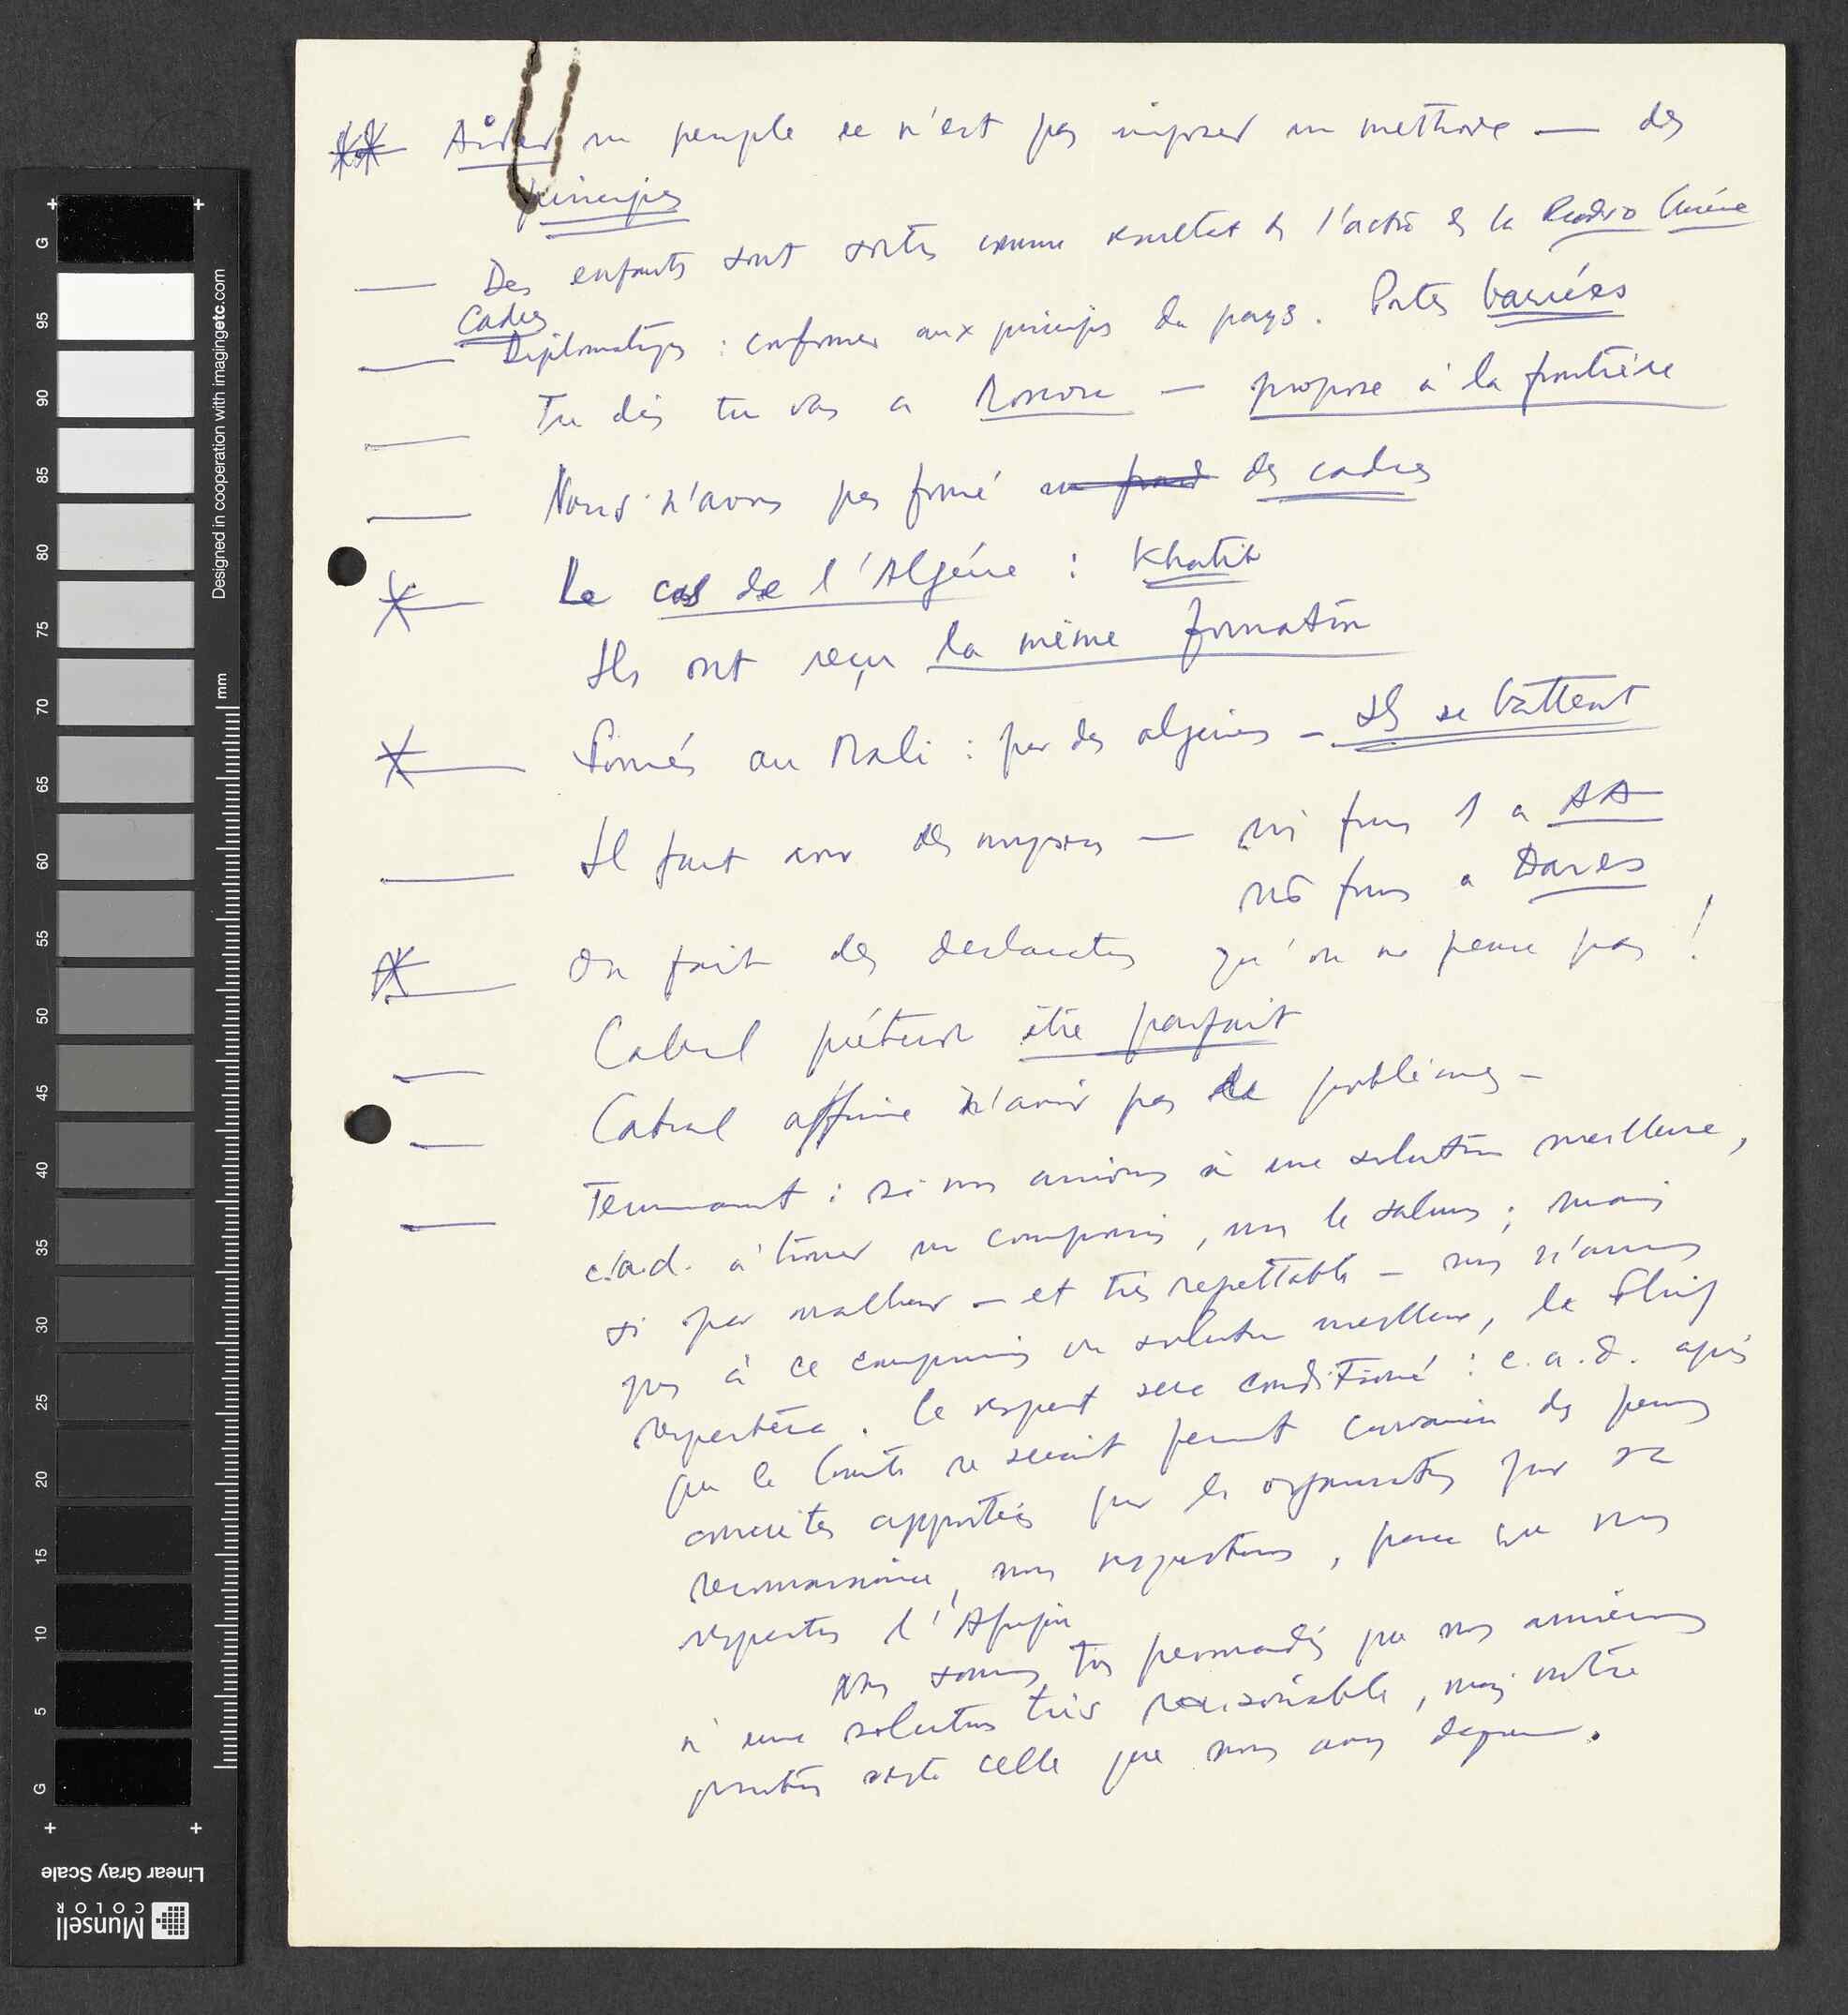 Aider un peuple ce n'est pas imposer un methode — des
principes
— Des enfants sont sortis comme resultat de l'actio de la Radio Guinée
Cadres
— Diplomatiques : conformer aux principes du pays. Portes barrées
— Tu dis tu vas a — propose à la frontière
— Nous n'avons pas formé des cadres
Le cas de l'Algérie : Khatib
Ils ont reçu la même formation
Formés au Mali : par des algeries - Ils se battent
— Il faut avoir des — ni fum 1 a AA
fum a Dar es
On fait des declarations qu'on ne pense pas !
— Cabral prétend être parfait
— Cabral affirme n'avoir pas de problèmes -
— Terminant : si nos arrivons à une solution meilleure,
c.a.d. à trouver un compromis, nos le saluons ; mais
si par malheur - et très regrettable - nos n'arrivons
pas à ce compromis ou solution meilleure, le Fling
respectera. Ce respect sera conditioné : c.a.d. après
que le Comité se serait convaincu des preuves
concretes apportées par les organisations pour sa
reconnaissance, nous respectons, parce que nous
respectons l'Afrique
Nous sommes tres persuadés que nous arriverons
à une solution très raisonable, mais notre
position reste celle que nous avons
G 95 90 85 80 75 70 65 60 55 50 45 40 35 30 25 20 15 10 5 G
mm
Designed in cooperation with imagingetc.com
Linear Gray Scale
Munsell
COLOR